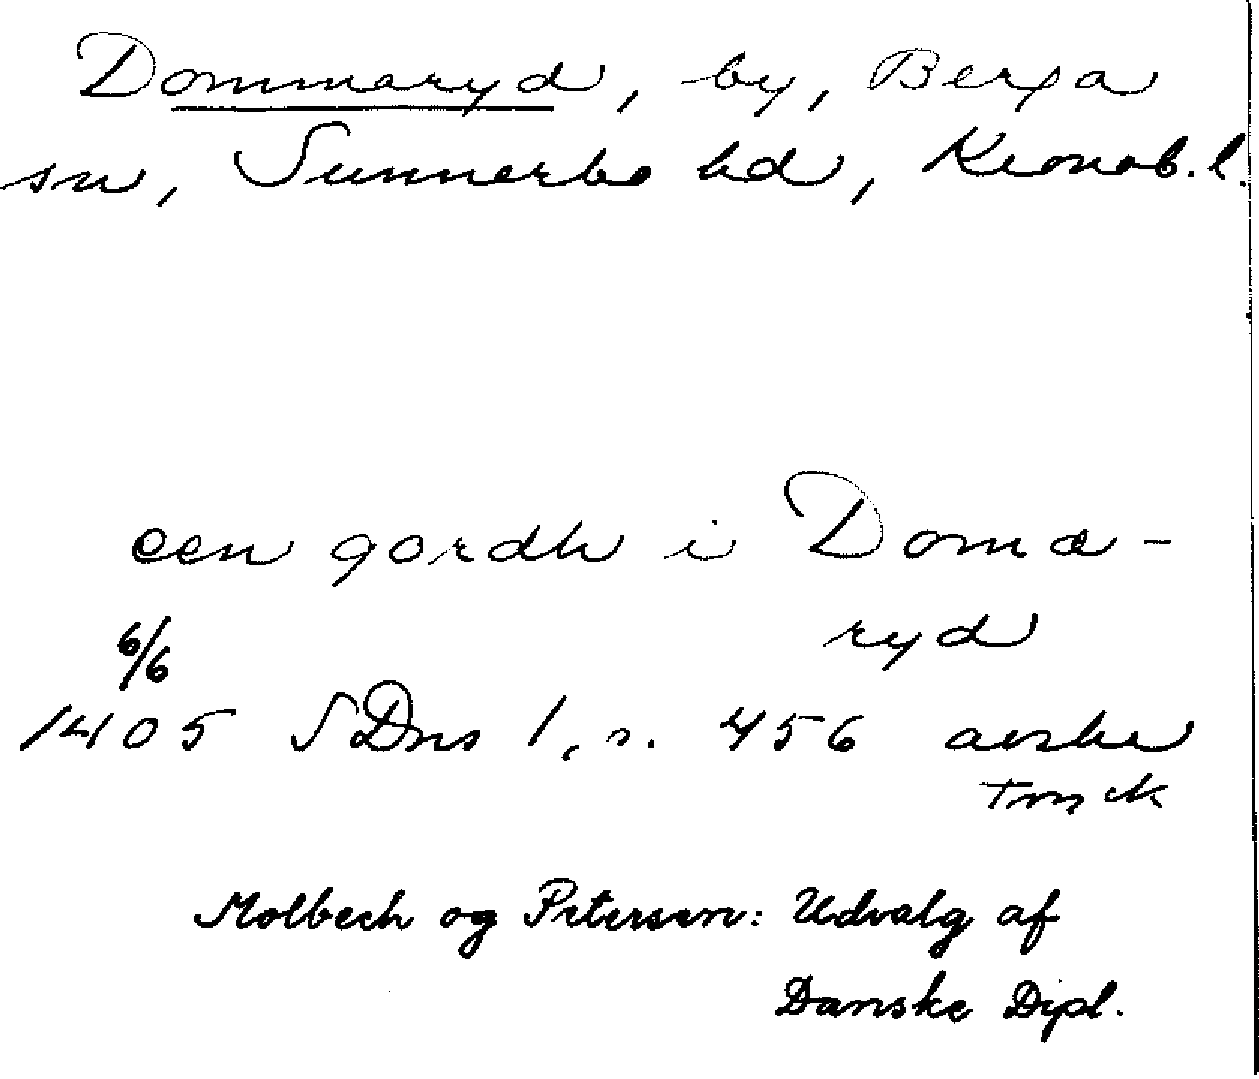 Dommaryd, by, Berga
sn, Sunnerbo hd, Kronob. l.
een gordh i Domæ-
ryd
6/6
1405 SDns 1, s. 456 avskr
tryck
Molbech og Petersen: Udvalg af
Danske Dipl.